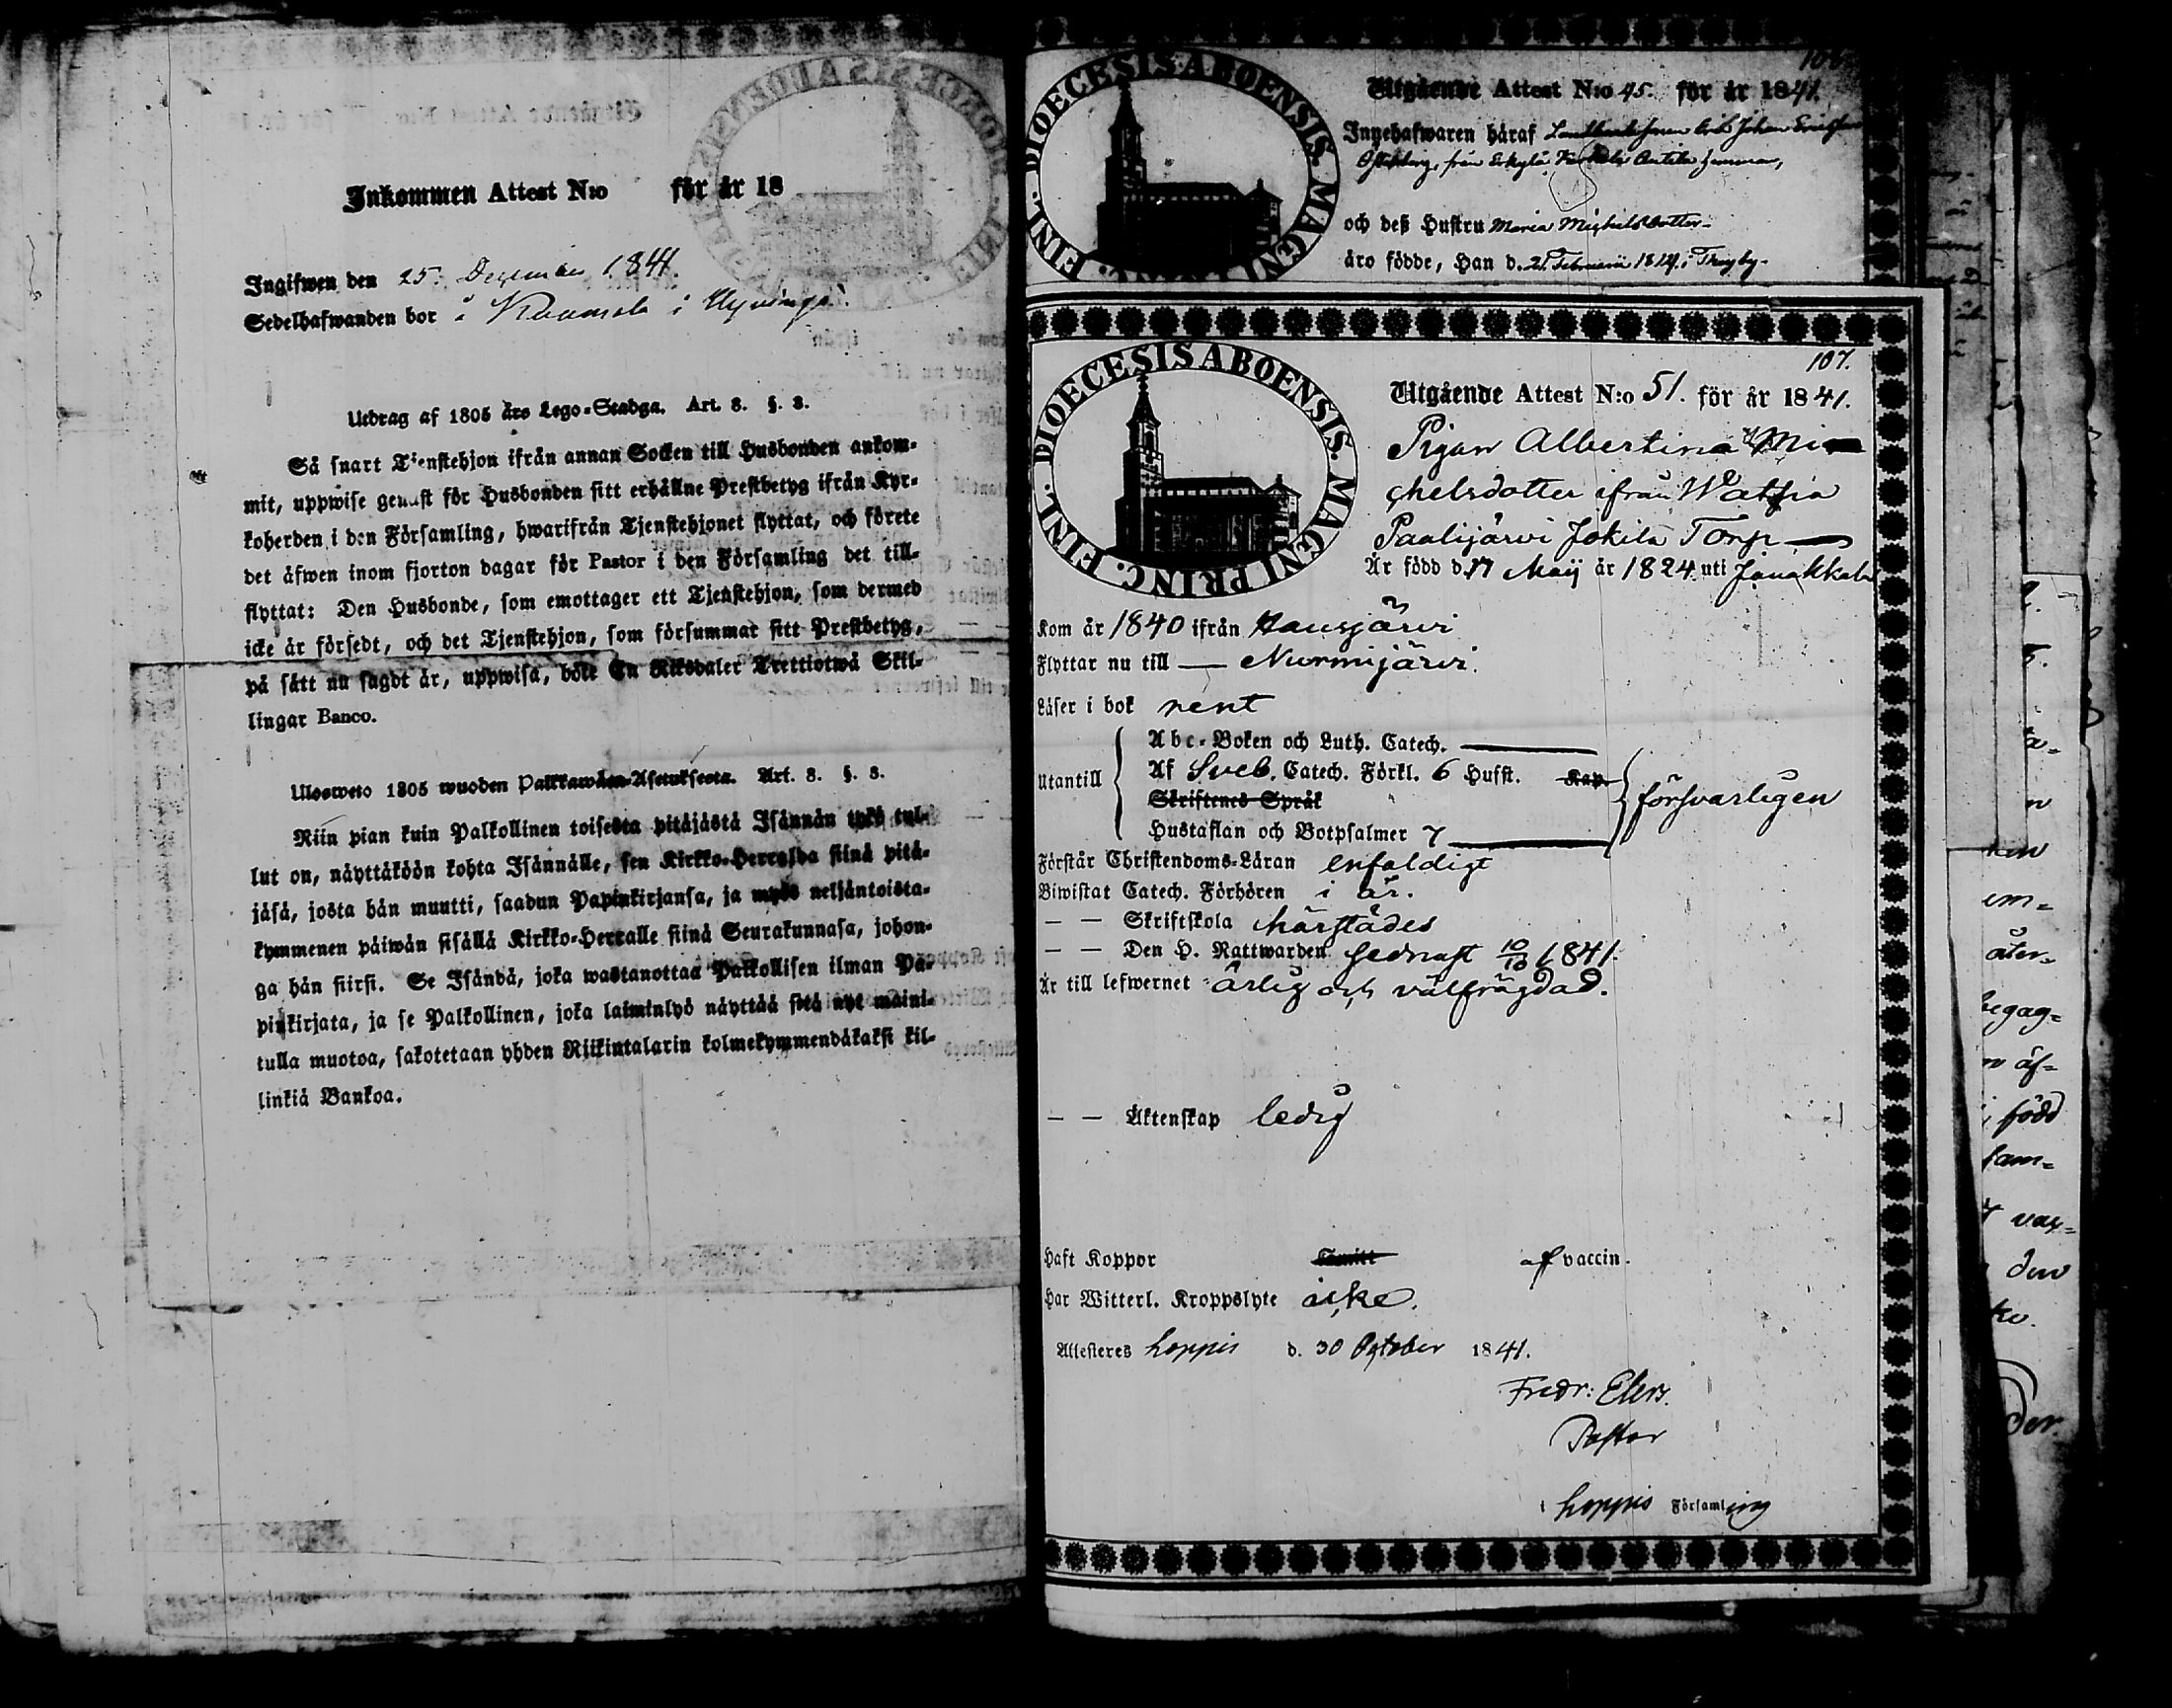 Inkommen Attest N:o för år 18
Ingifwen den 25. December 1841.
Sedelhafwanden bor i Raamola i Hyvinge.
Utdrag af 1805 års Lego-Stadga. Art. 8. §. 8.
Så snart Tjenstehjon ifrån annan Socken till Husbonden ankom-
mit, uppwise genast för Husbonden sitt erhållne Prestbetyg ifrån Kyr-
koherden i den Församling, hwarifrån Tjenstehjonet flyttat, och förete
det äfwen inom fjorton dagar för Pastor i den Församling det till-
flyttat: Den Husbonde, som emottager ett Tjenstehjon, som dermed
icke är försedt, och det Tjenstehjon, som försummar sitt Prestbetyg,
på sätt nu sagdt är, uppwisa, böte En Riksdaler Trettiotwå Skil-
lingar Banco.
Uloswеto 1805 wuoden Palkkawäen-Asetuksesta. Art. 8. §. 8.
Niin pian kuin Palkollinen toisesta pitäjästä Isännän tykö tul-
lut on, näyttäköön kohta Isännälle, sen Kirkko-Herralda siinä pitä-
jäsä, josta hän muutti, saadun Papinkirjansa, ja myös neljäntoista-
kymmenen päiwän sisällä Kirkko-Herralle siinä Seurakunnasa, johon-
ga hän siirsi. Se Isändä, joka wastanottaa Palkollisen ilman Pa-
pinkirjata, ja se Palkollinen, joka laiminlyö näyttää sitä nyt maini-
tulla muotoa, sakotetaan yhden Riikintalarin kolmekymmendäkaksi kil-
linkiä Bankoa.
106
DIOECESIS ABOENSIS. MAGNI PRINC. FINL.
Utgående Attest N:o 45. för år 1841.
Innehafwaren häraf Johan
från Erkylä
och deß Hustru Maria Michelsdotter
äro födde, Han d. 21 Februarii 1814 i
107.
DIOECESIS ABOENSIS. MAGNI PRINC. FINL.
Utgående Attest N:o 51. för år 1841.
Pigan Albertina Mi-
chelsdotter ifrån Watsia
Paalijärvi Jokila Torp
Är född d. 17 Maij år 1824 uti Janakkala
Kom år 1840 ifrån Hausjärvi
Flyttar nu till — Nurmijärvi.
Läser i bok rent
Utantill
Abc-Boken och Luth. Catech.
Af Sveb. Catech. Förkl. 6 Hufst. Kap.
Skriftenes Språk
Hustaflan och Botpsalmer 7
försvarligen
Förstår Christendoms-Läran enfaldigt
Biwistat Catech. Förhören i år.
— — Skriftskola härstädes
— — Den H. Nattwarden sednast 10/10 1841.
Är till lefwernet ärlig och välfrägdad.
— — Äktenskap ledig
Haft Koppor Timitt af vaccin.
Har Witterl. Kroppslyte icke.
Attesteres Loppis d. 30 October 1841.
Fredr: Elers.
Pastor
i Loppis Församling